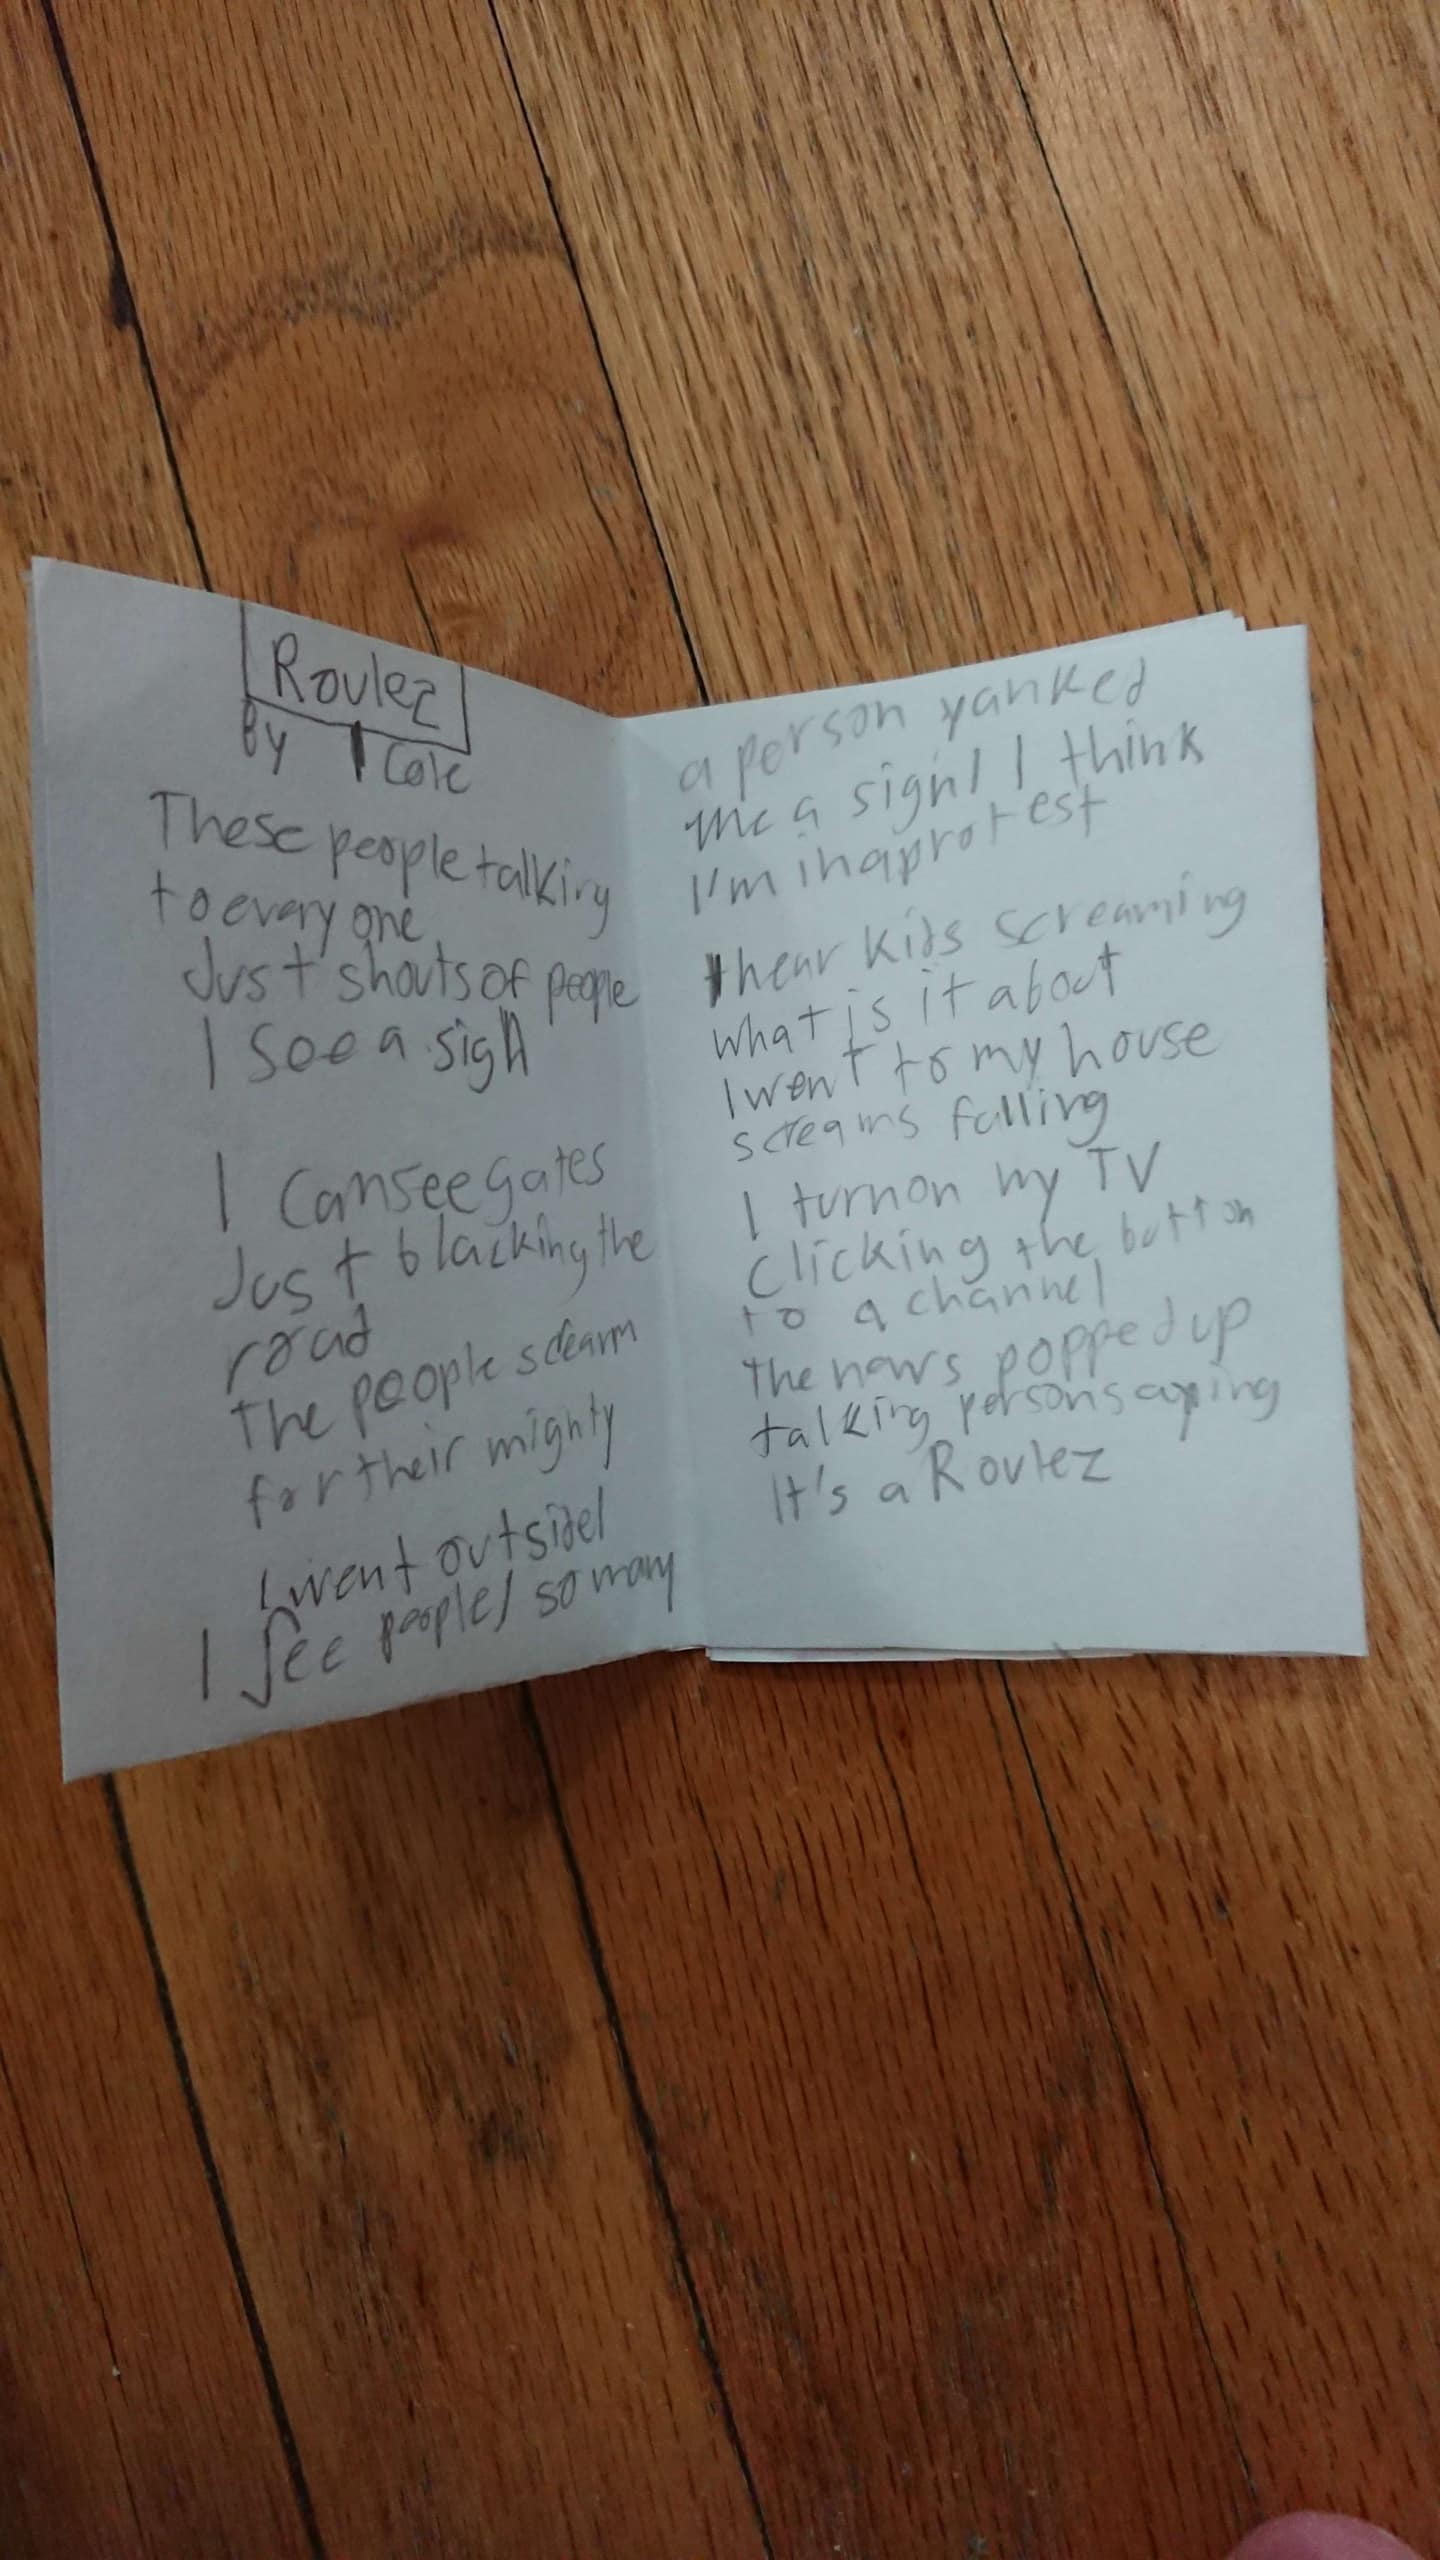 Roulez
By Cole
These people talking
to every one
Just shouts of people
I see a sign
I can see gates
Just blacking the
road
The people scream
for their mighty
I went outside/
I see people/ so many
a person yanked
me a sign/ I think
I'm in a protest
I hear kids screaming
what is it about
I went to my house
screams falling
I turn on my TV
Clicking the button
to a channel
the news popped up
talking person saying
It's a Roulez